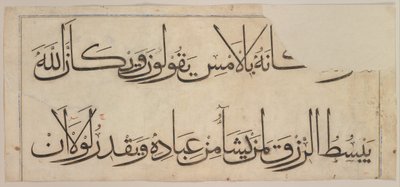 كَانَهُ بِالْاَمْسِ يَقُولُونَ وَيْكَاَنَّ اللّٰهَ
يَبْسُطُ الرِّزْقَ لِمَنْ يَشَآءُ مِنْ عِبَادِهِ وَيَقْدِرُ لَوْلَا اَنْ